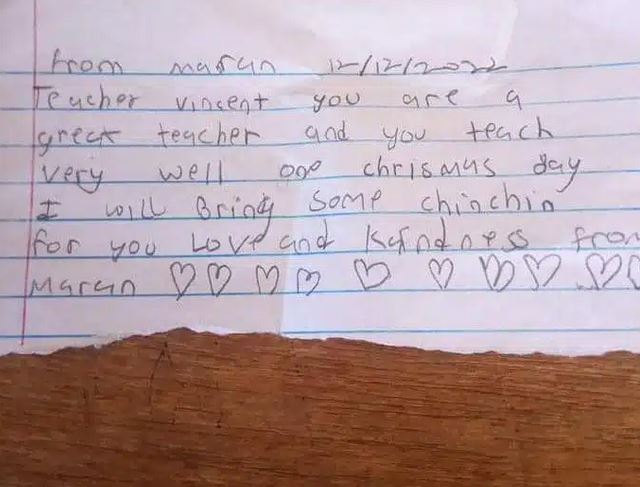 from maran 12/12/2022
Teacher vincent you are a
great teacher and you teach
very well one chrismus day
I will Bring some chinchin
for you Love and Kaindness from
Maran ♡♡ ♡♡ ♡ ♡ ♡♡ ♡♡